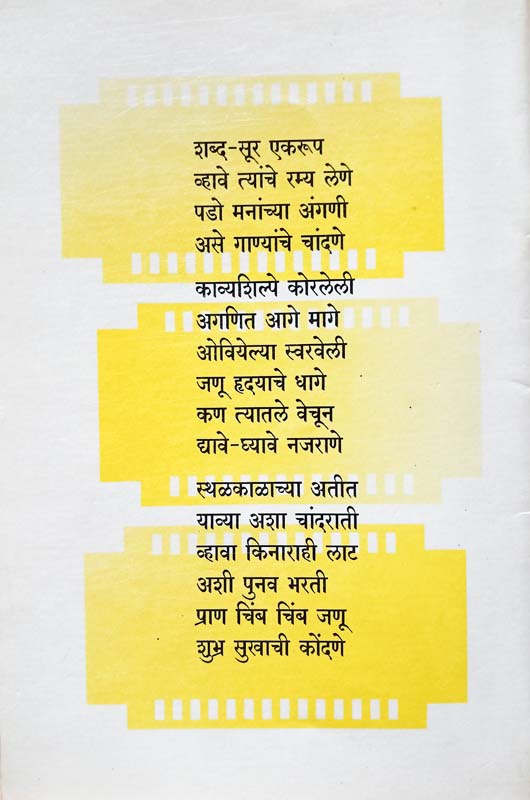 शब्द-सूर एकरूप
व्हावे त्यांचे रम्य लेणे
पडो मनांच्या अंगणी
असे गाण्यांचे चांदणे
काव्यशिल्पे कोरलेली
अगणित आगे मागे
ओवियेल्या स्वरवेली
जणू हृदयाचे धागे
कण त्यातले वेचून
द्यावे-घ्यावे नजराणे
स्थळकाळाच्या अतीत
याव्या अशा चांदराती
व्हावा किनाराही लाट
अशी पुनव भरती
प्राण चिंब चिंब जणू
शुभ्र सुखाची कोंदणे